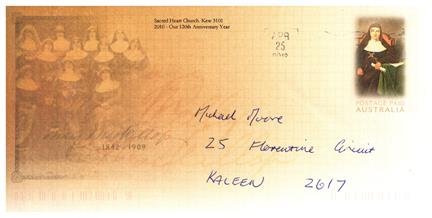 Sacred Heart Church, Kew 3101
2010 - Our 120th Anniversary Year
APR
25
POSTAGE PAID
AUSTRALIA
1842 - 1909
Michael Moore
25 Florentine Circuit
KALEEN 2617